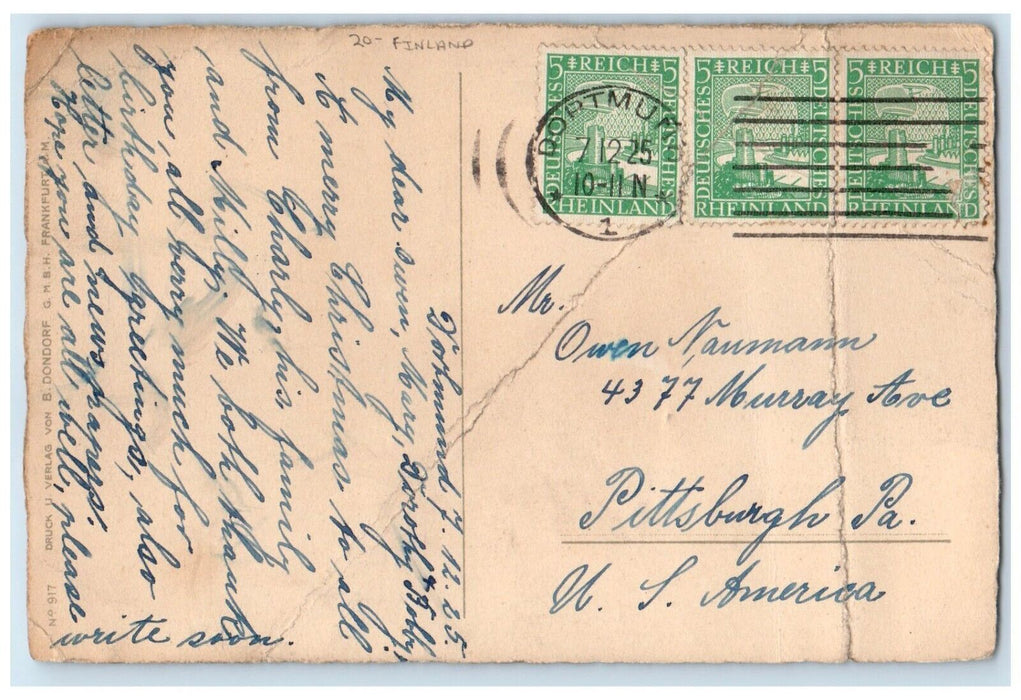 20- FINLAND
5 REICH 5
DEUTSCHES
DEUTSCHES
RHEINLAND
5 REICH 5
DEUTSCHES
DEUTSCHES
RHEINLAND
5 REICH 5
DEUTSCHES
DEUTSCHES
RHEINLAND
DORTMUND
7 12 25
10-11 N
1
Dortmund 7. 12. 25.
My dear Owen, Mary, Dorothy & Bobby,
A merry Christmas to all
from Charly, his family
and Milly. We both thank
you all very much for
birthday greetings, also
letter and newspapers.
Hope you are all well, please
write soon.
Mr.
Owen Naumann
4377 Murray Ave
Pittsburgh Pa.
U. S. America
No 917 DRUCK U. VERLAG VON B. DONDORF G. M. B. H. FRANKFURT A. M.